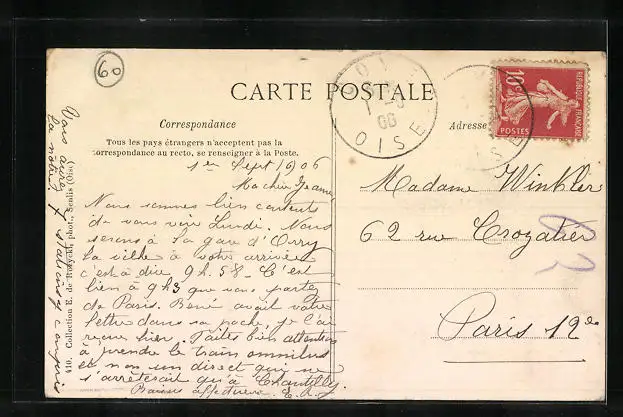 60
CARTE POSTALE
Correspondance
Tous les pays étrangers n'acceptent pas la
correspondance au recto, se renseigner à la Poste.
Adresse
OISE
REPUBLIQUE FRANÇAISE
10c
POSTES
1er Sept 1906
Ma chère
Nous sommes bien contents
de vous voir Lundi. Nous
serons à la gare d'Orry
la ville à votre arrivée
c'est à dire 9h.58 - C'est
bien à 9h3 que vous partez
de Paris. René avait votre
lettre dans sa poche, je l'ai
reçue hier. Faites bien attention
à prendre le train omnibus
et non un direct qui ne
s'arrêterait qu'à Chantilly.
Baisers affectueux
Madame Winkler
62 rue Crozatier
Paris 12e
Vous avez
la note
410. Collection E. de Rozycki, phot., Senlis (Oise)